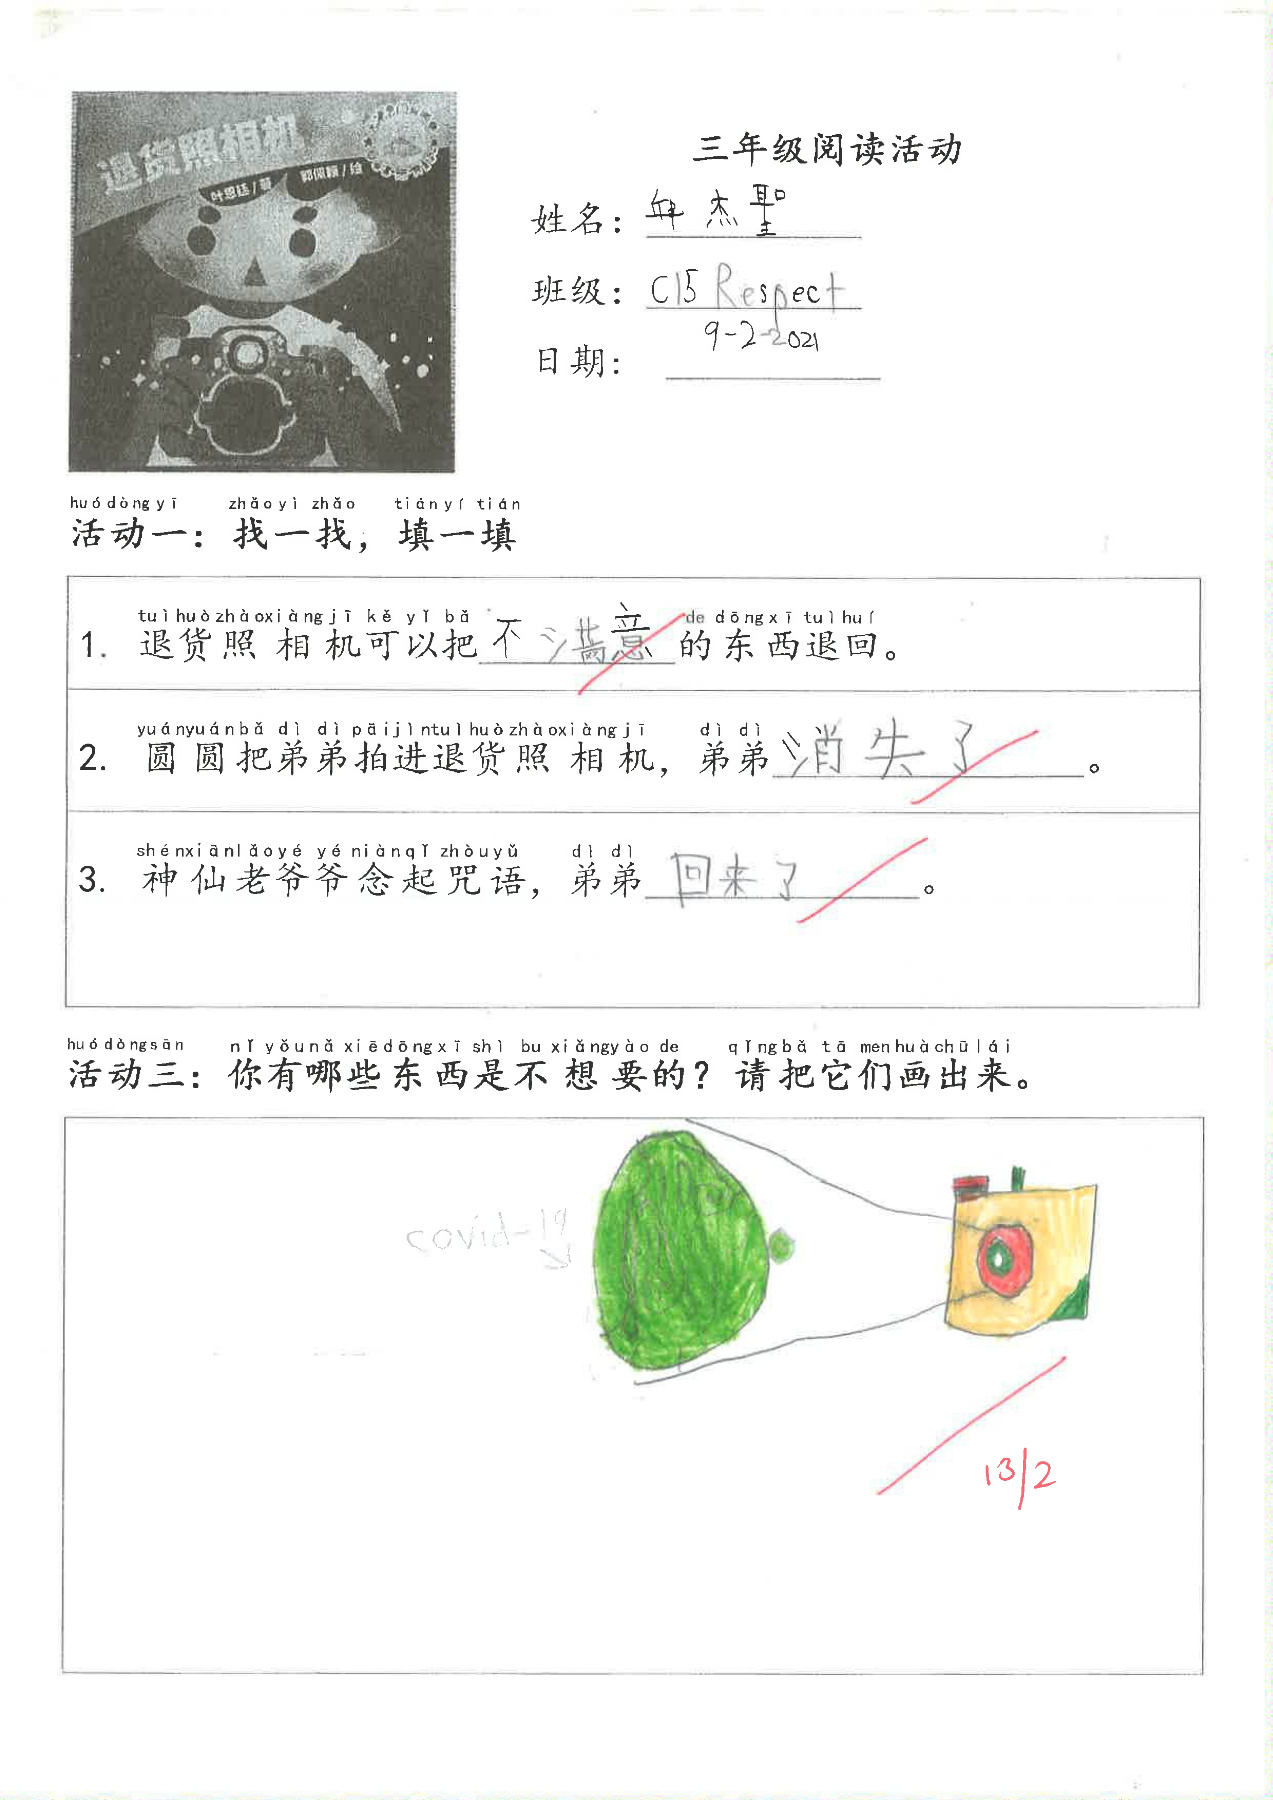 退货照相机
叶恩廷/著 郭佩颖/绘
三年级阅读活动
姓名：杰聖
班级：C15 Respect
日期：9-2-2021
huódòngyī zhǎoyìzhǎo tiányítián
活动一：找一找，填一填
tuìhuòzhàoxiàngjī kěyǐbǎ de dōngxītuìhuí
1. 退货照相机可以把不满意的东西退回。
yuányuánbǎ dìdì pāijìntuìhuòzhàoxiàngjī dìdì
2. 圆圆把弟弟拍进退货照相机，弟弟消失了。
shénxiānlǎoyé yéniànqǐzhòuyǔ dìdì
3. 神仙老爷爷念起咒语，弟弟回来了。
huódòngsān nǐyǒunǎxiēdōngxīshì bu xiǎngyàode qǐngbǎ tāmenhuàchūlái
活动三：你有哪些东西是不想要的？请把它们画出来。
covid-19
13/2